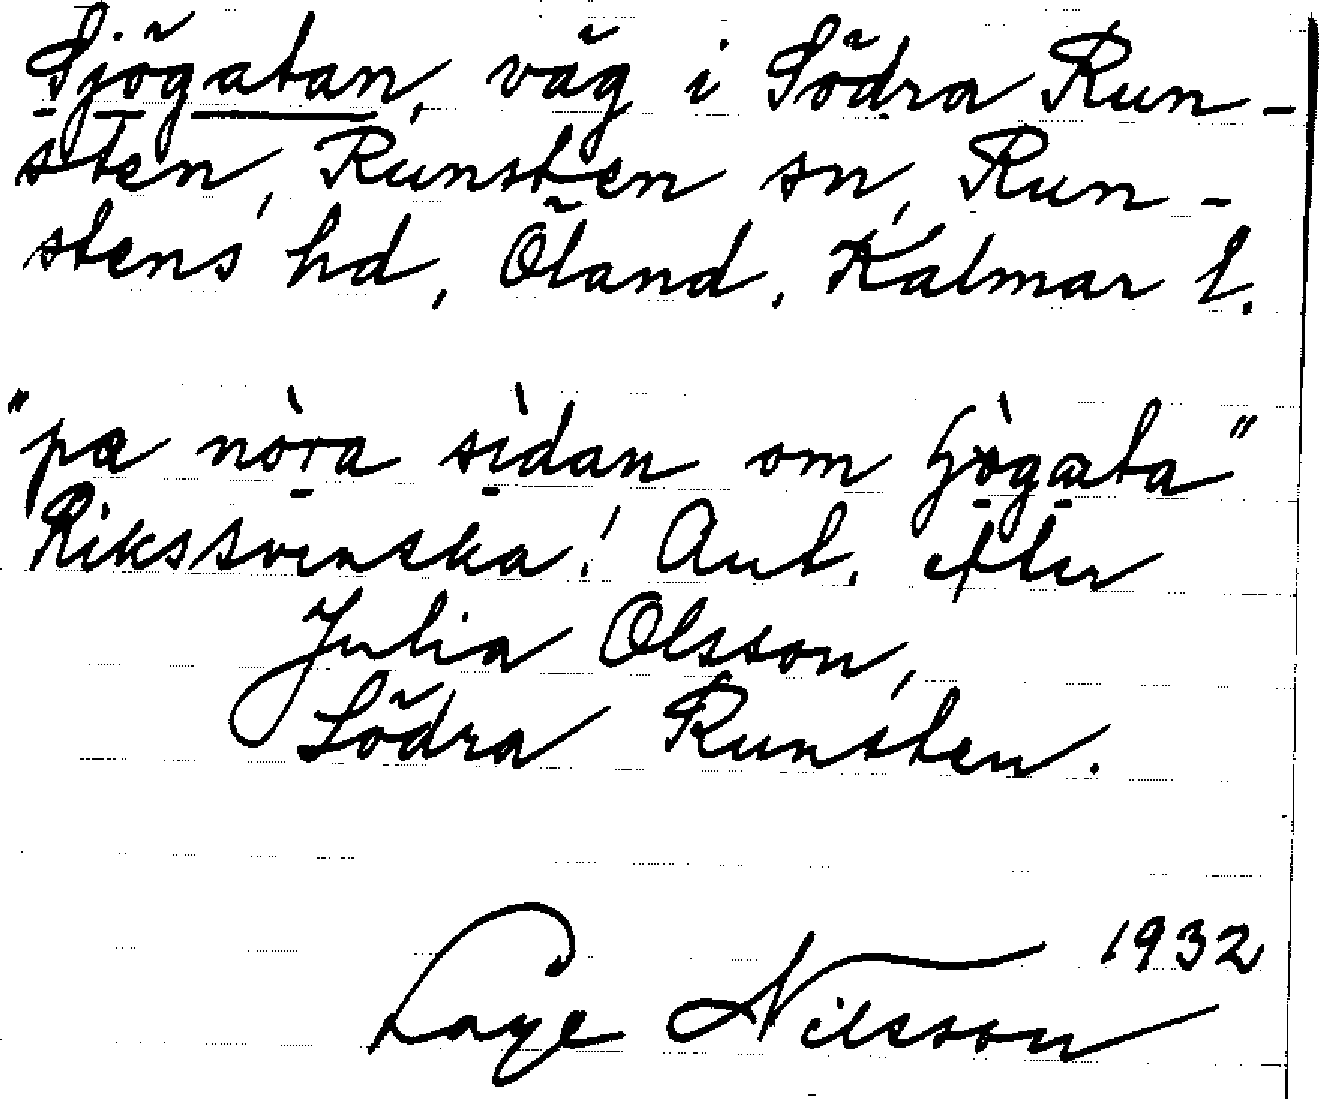 Sjögatan, väg i Södra Run-
sten, Runsten sn, Run-
stens hd, Öland, Kalmar l.
"pæ nòra sìdan om ɧògata"
Rikssvenska! Ant. efter
Julia Olsson,
Södra Runsten.
1932
Nilsson